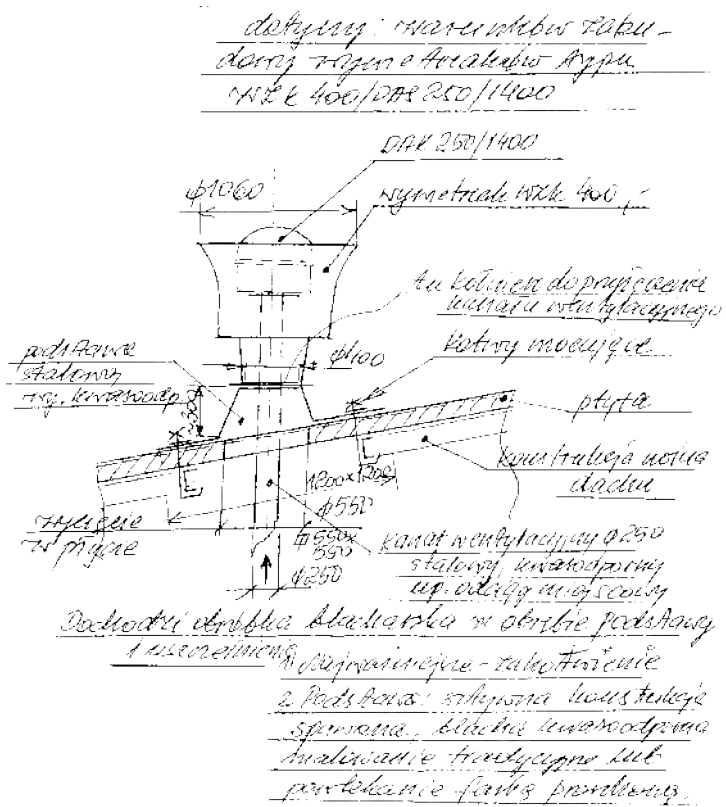 dotyczy: warunków zabu-
dowy wymetraków typu
WZK 400/DAS 250/1400
DAK 250/1400
ϕ1060
wymetrak WZK 400
tu kołnierz do przyłączenia
kanału wentylacyjnego
ϕ400
kotwy mocujące
podstawa
stalowa
wy. kwasoodp.
płyta
konstrukcja nośna
dachu
1200x1200
ϕ550
wycięcie
w płycie
550x
550
ϕ250
kanał wentylacyjny ϕ250
stalowy, kwasoodporny
np. odciąg miejscowy
Dochodzi obróbka blacharska w obrębie podstawy
i uszczelnienia
1) Najważniejsze - zakotwienie
2 Podstawa: sztywna konstrukcja
spawana, blacha kwasoodporna
malowanie tradycyjne lub
powlekanie farbą proszkową.